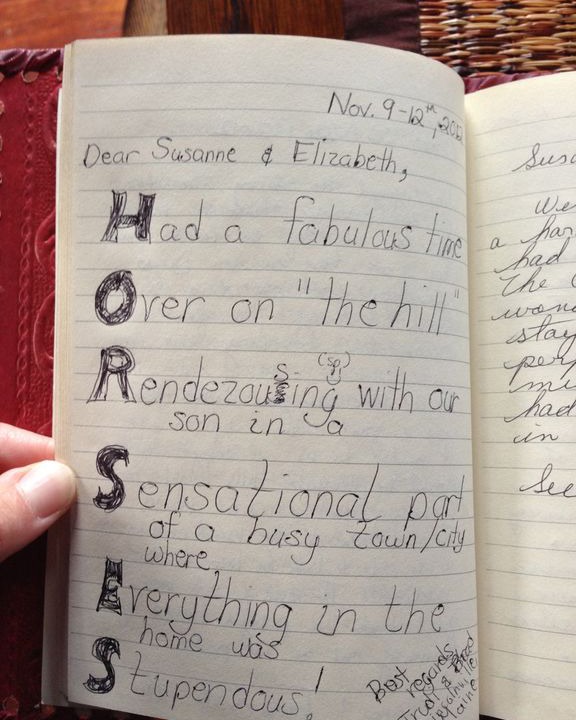 Nov. 9-12th, 2012
Dear Susanne & Elizabeth,
Had a fabulous time
Over on "the hill"
Rendezousing (sp) with our
son in a
Sensational part
of a busy town/city
where
Everything in the
home was
Stupendous!
Best
regards,
We
a
had
The
stay
mi
had
in
See